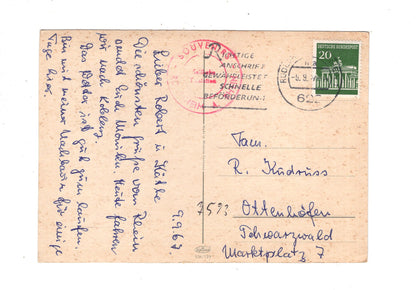 9.9.67
Lieber Robert u. Käthe
Die schönsten Grüße vom Rhein
sendet Euch Monika. Heute fahren
wir nach Koblenz.
Das Wetter ist gut zum laufen.
Bin mit meiner Nachbarin für einige
Tage hier.
SOUVENIR
RICHTIGE
ANSCHRIFT
GEWÄHRLEISTET
SCHNELLE
BEFÖRDERUNG
RÜDESHEIM
622
DEUTSCHE BUNDESPOST
20
Fam.
R. Kudruss
7593 Ottenhöfen
Schwarzwald
Marktplatz 7